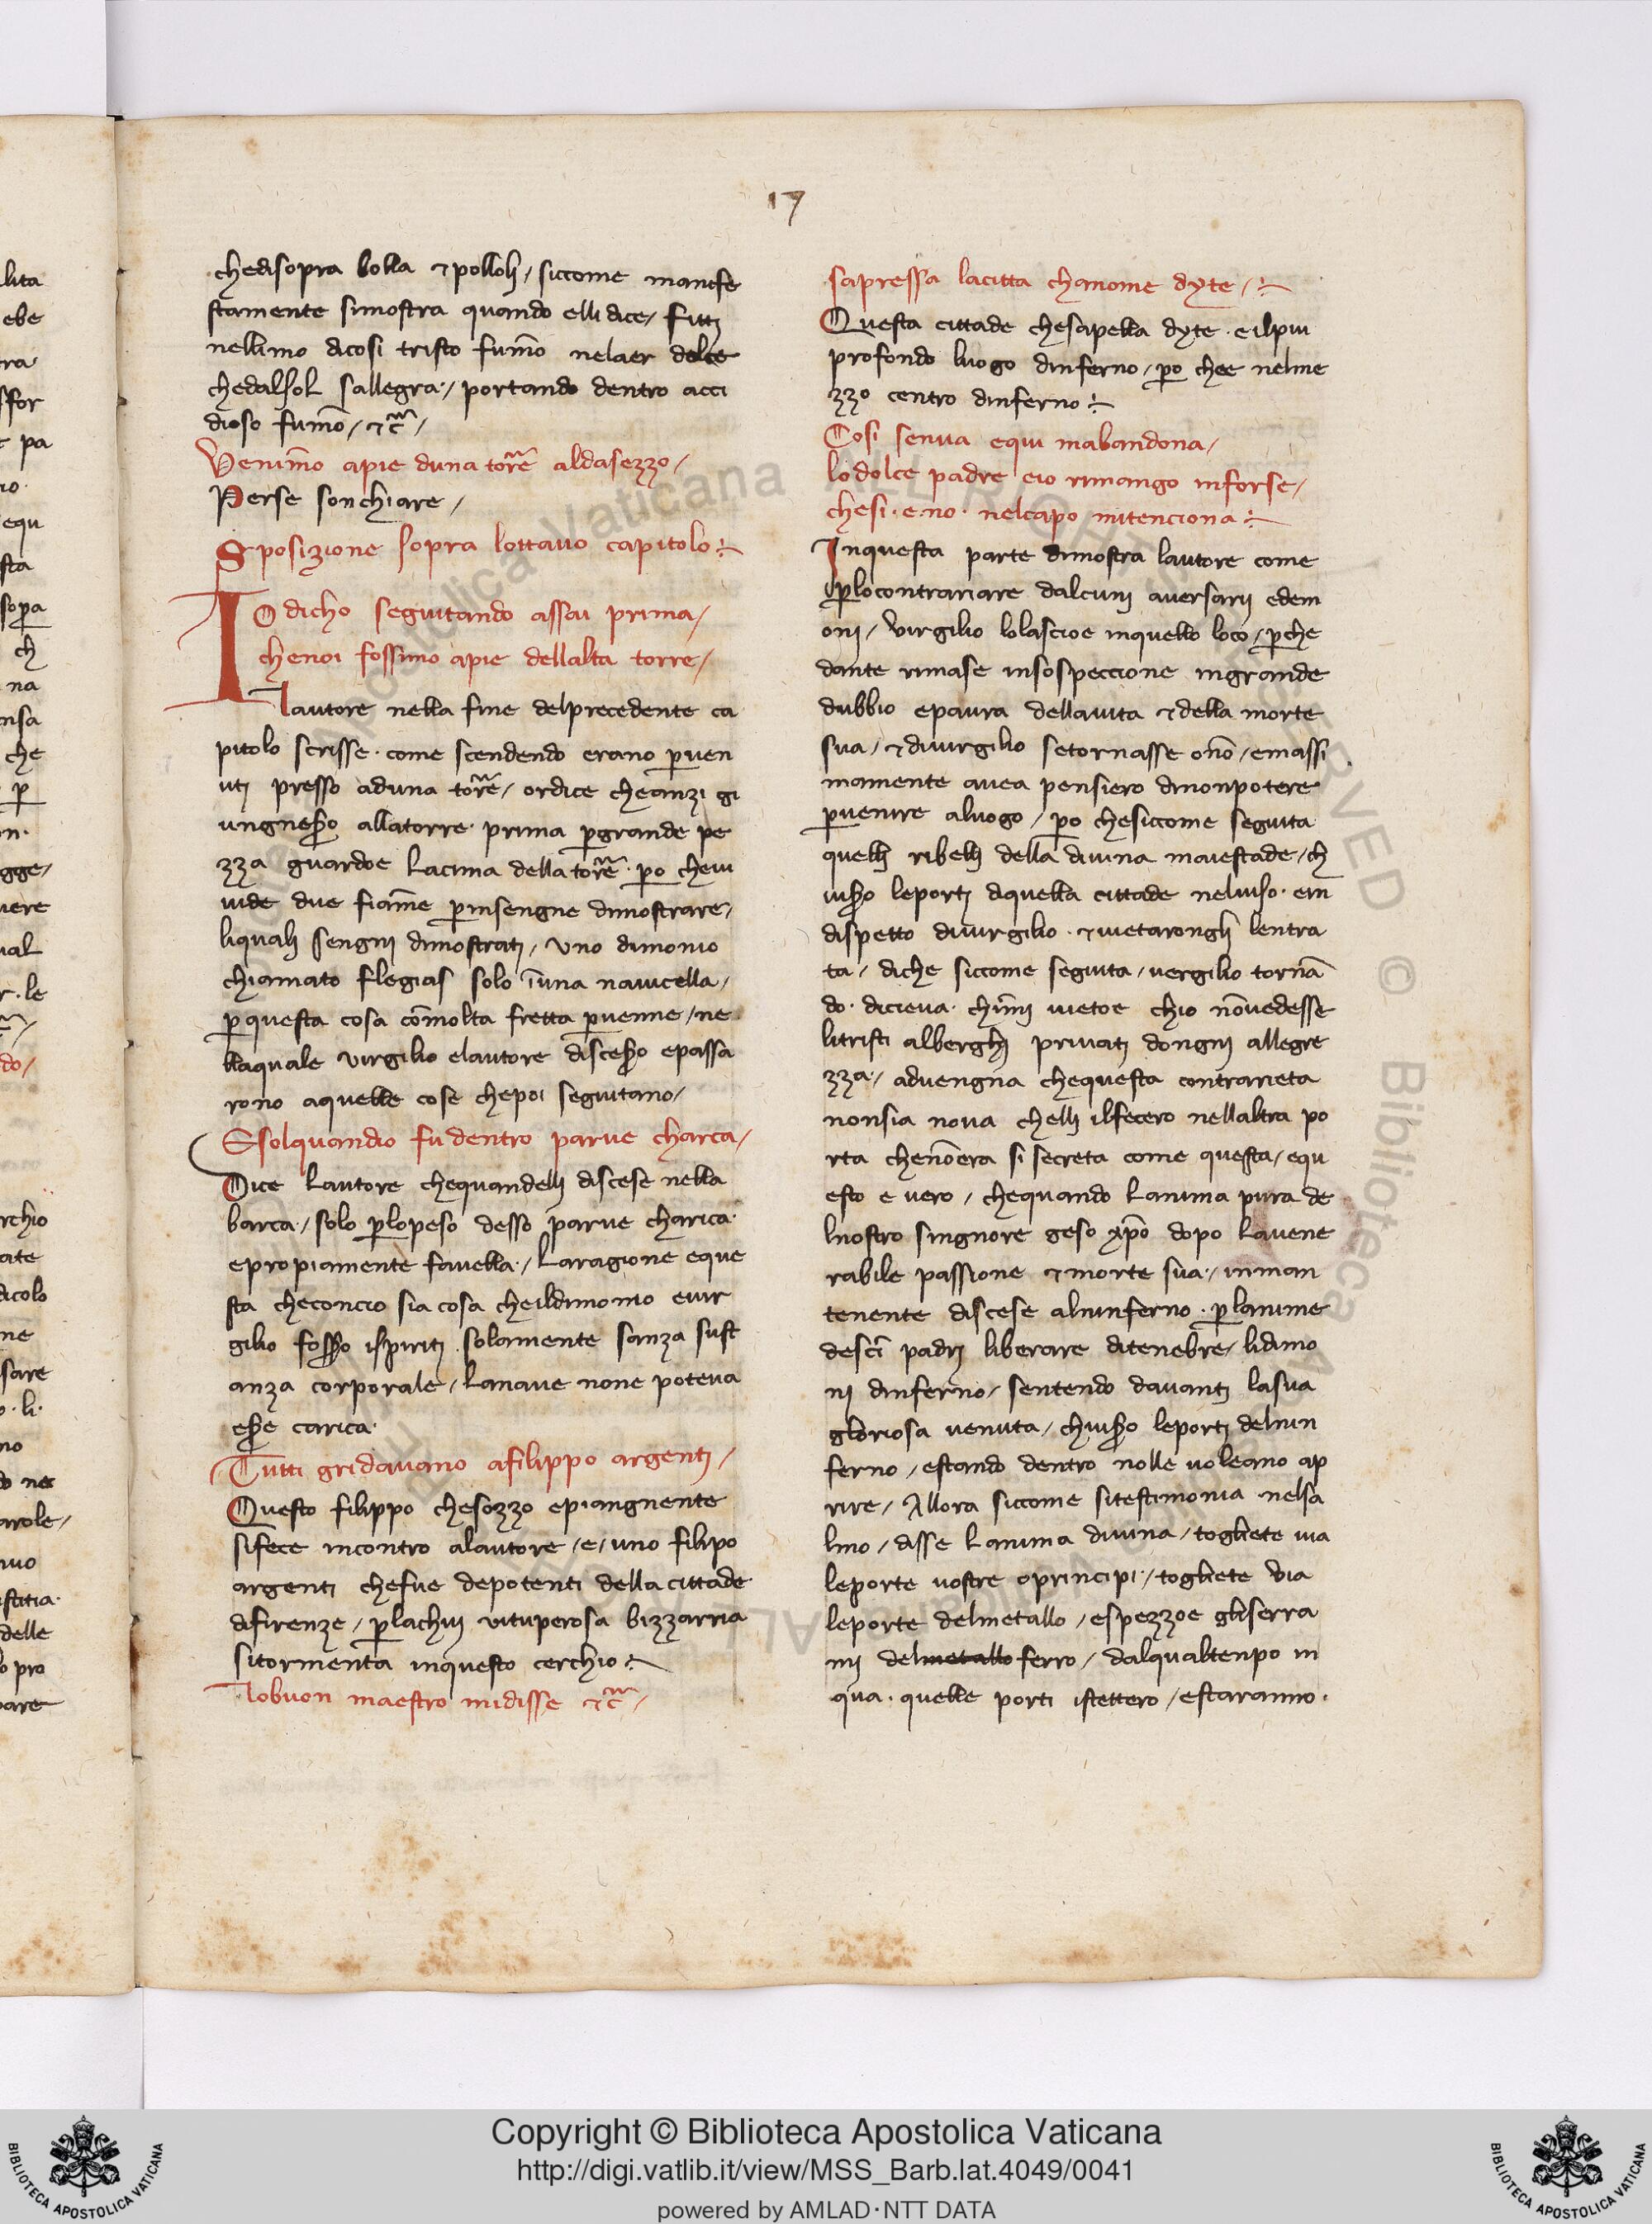 17
chedisopra bolla ⁊polloli / siccome manife
stamente simostra quando elli dice / fitti
nellimo dicosi tristo fum̄o nelaer dolce
chedalsol sallegra / portando dentro acci
dioso fum̄o / ⁊c̃ /
Venim̄o apie duna tor̃e aldasezzo /
Perse son chiare /
Sposizione sopra lottauo capitolo :-
IO dicho seguitando assai prima /
chenoi fossimo apie dellalta torre /
Lautore nella fine delprecedente ca
pitolo scrisse · come scendendo erano ꝑuen
uti presso aduna tor̃e / ordice cheanzi gi
ungneſſo allatorre · prima ꝑgrande pe
zza guardoe Lacima della tor̃e · ꝑo cheui
uide due fiam̄e ꝑinsengne dimostrare /
liquali sengni dimostrati / uno dimonio
chiamato flegias solo ī una nauicella /
ꝑquesta cosa cōmolta fretta ꝑuenne / ne
llaquale virgilio elautore disceſſo epassa
rono aquelle cose chepoi seguitano /
Esolquandio fu dentro parue charca /
Dice Lautore chequandelli discese nella
barca / solo ꝑlopeso desso parue charica ·
epropiamente fauella / Laragione eque
sta checoncio sia cosa cheildimonio euir
gilio foſſo ispiriti solamente sanza sust
anza corporale / Lanaue none poteua
eſſe carica ·
Tutti gridauano afilippo argenti /
Questo filippo chesozzo epiangnente
sifece incontro alautore / e / uno filipo
argenti chefue depotenti della cittade
difirenze / ꝑlachui uituperosa bizzarria
sitormenta inquesto cerchio :-
Lobuon maestro midisse ⁊c̃ /
sapressa lacitta chanome dyte / :-
Questa cittade chesapella dyte · eilpiu
profondo luogo dinferno / ꝑo chee nelme
zzo centro dinferno :-
Cosi senua equi mabandona /
lo dolce padre eio rimango inforse /
chesi · e · no · nelcapo mitenciona :-
Inquesta parte dimostra lautore come
ꝑlocontrariare dalcuni auersarii edem
oni / virgilio lolascioe inquello loco / ꝑche
dante rimase insospeccione ingrande
dubbio epaura dellauita ⁊della morte
sua / ⁊diuirgilio setornasse onō / emassi
mamente auea pensiero dinonpotere
ꝑuenire aluogo / ꝑo chesiccome seguita
quelli ribelli della diuina maiestade / ch
iuſſo leporti diquella cittade neluiso · ein
dispetto diuirgilio · ⁊uietarongli lentra
ta / diche siccome seguita / vergilio tornā
do · diceua · chim̄i uietoe chio nōuedesse
litristi alberghi priuati dongni allegre
zza / aduengna chequesta contrarieta
nonsia noua chelli ilfecero nellaltra po
rta chenōera si secreta come questa / equ
esto e vero / chequando Lanima pura de
lnostro singnore geso xp̄o dopo Lauene
rabile passione ⁊morte sua / inman
tenente discese alninferno · ꝑlanime
desc̄i padri liberare ditenebre / lidimo
ni dinferno / sentendo dauanti lasua
gloriosa uenuta / chiuſſo leporti delnin
ferno / estando dentro nolle uoleano ap
rire / Allora siccome sitestimonia nelsa
lmo / disse Lanima diuina / togliete uia
leporte uostre oprincipi / togliete via
leporte delmetallo / espezzoe gliserra
mi delmetallo ferro / dalqualtenpo in
qua · quelle porti istettero / estaranno ·
Copyright © Biblioteca Apostolica Vaticana
http://digi.vatlib.it/view/MSS_Barb.lat.4049/0041
powered by AMLAD·NTT DATA
BIBLIOTECA APOSTOLICA VATICANA
BIBLIOTECA APOSTOLICA VATICANA